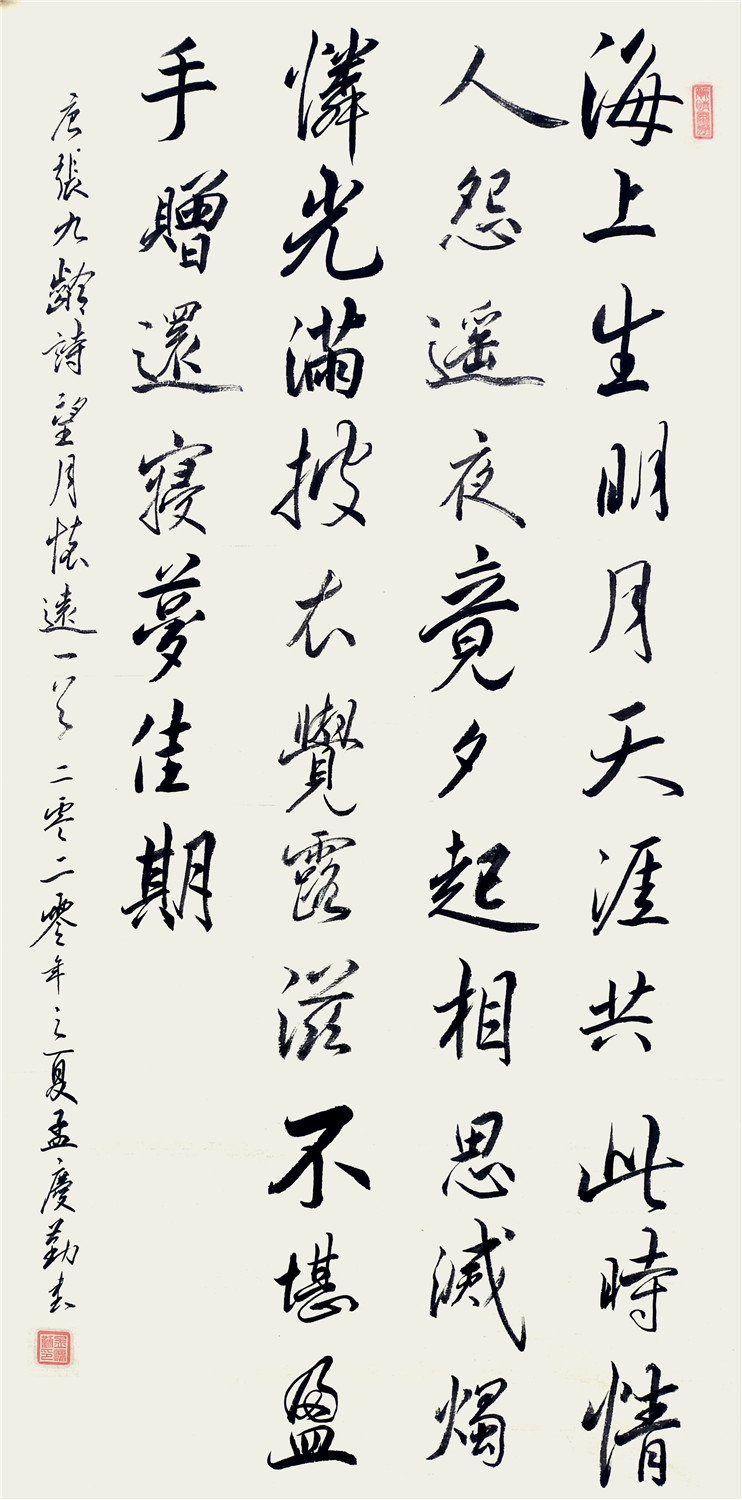 海上生明月天涯共此時情
人怨遥夜竟夕起相思滅燭
憐光滿披衣覺露滋不堪盈
手贈還寢夢佳期
唐張九齡詩望月懷遠一首二零二零年之夏孟慶勤書